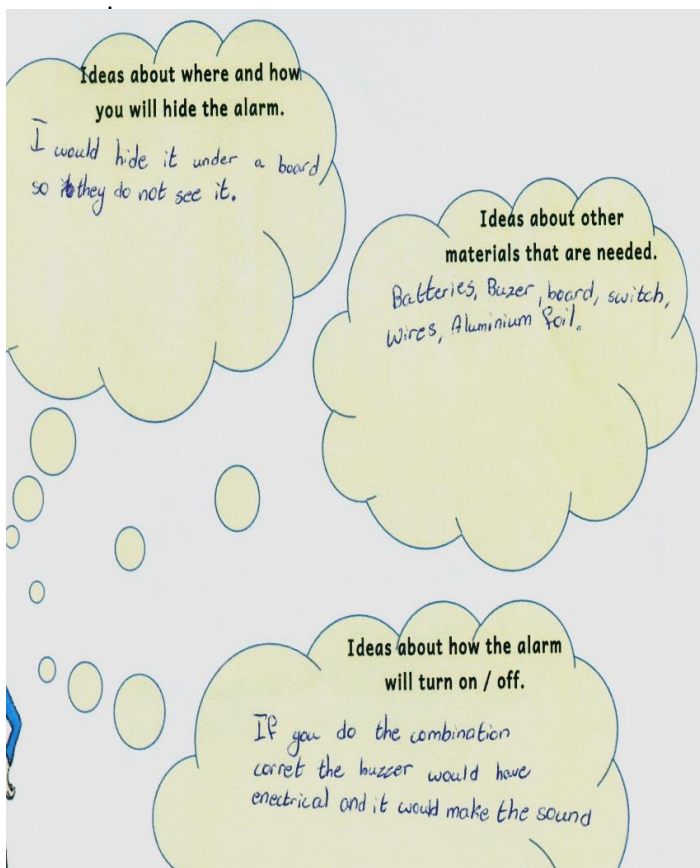 Ideas about where and how
you will hide the alarm.
I would hide it under a board
so they do not see it.
Ideas about other
materials that are needed.
Batteries, Buzer, board, switch,
Wires, Aluminium foil.
Ideas about how the alarm
will turn on / off.
If you do the combination
corret the buzzer would have
enectrical and it would make the sound